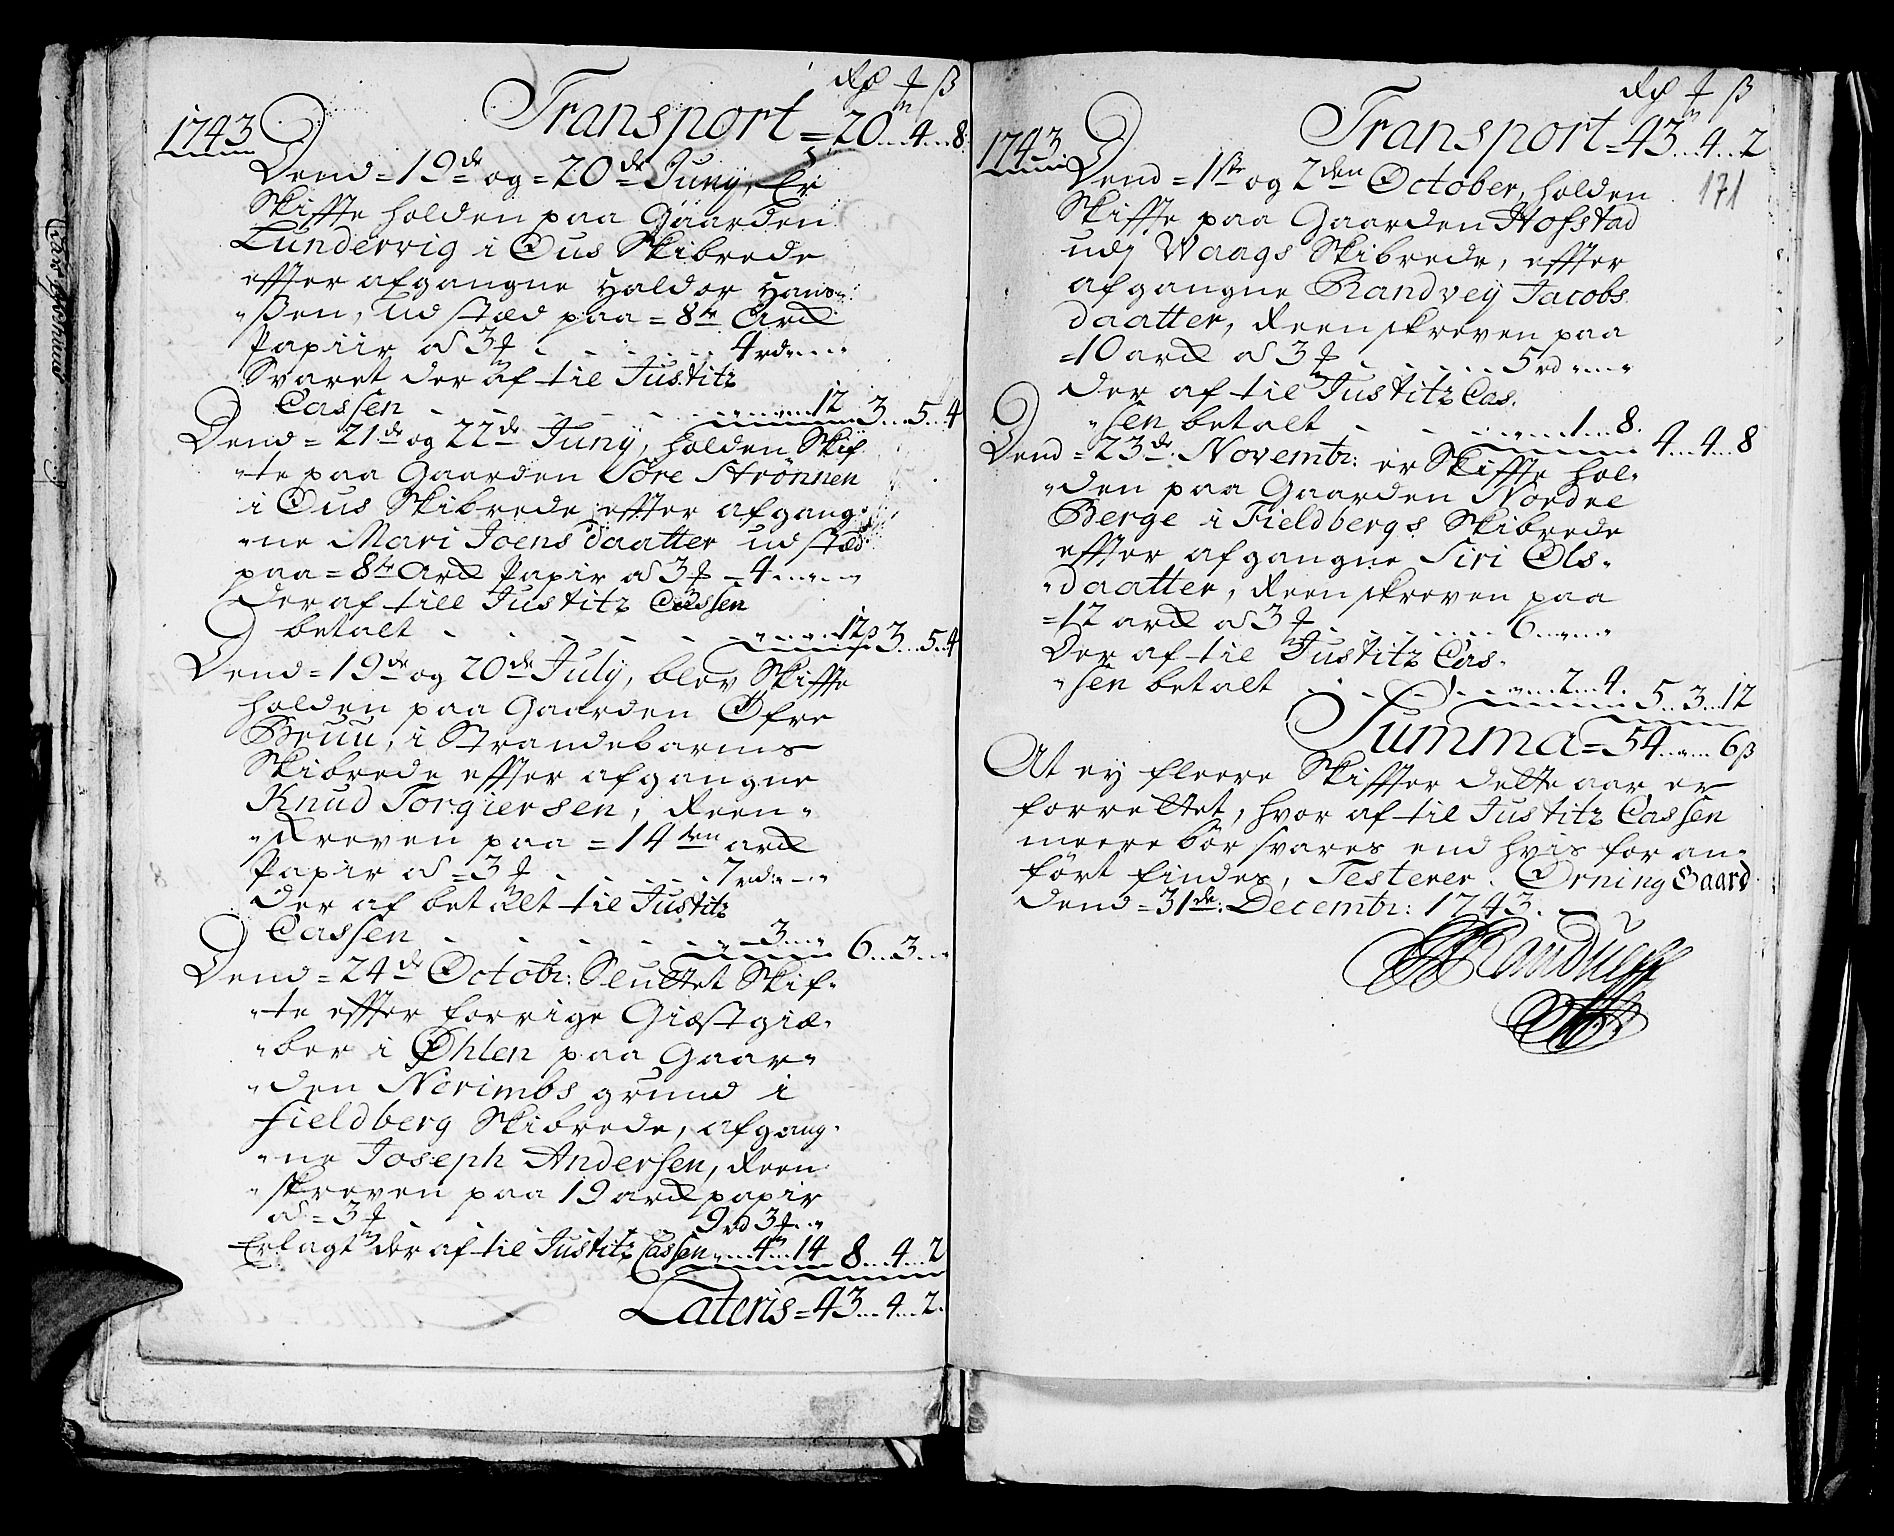 Rd m ß
Transport = 20...4...8.
1743
Dend = 19de og = 20de Junÿ, Er
Skiffte holden paa Gaarden
Lundervig i Øus Skibrede
effter afgangne Haldor Hans-
"ßen, udstæd paa = 8te Arck
Papiir ad 3 m . . . . . 4 rd
Svaret der af til Justitz
Cassen - - - - - 12 3...5...4
Dend = 21de og 22de Junÿ, holden Skif
"te paa Gaarden Søre Strønnen
i Øus Skibrede effter afgang-
"ne Mari Joens daatter udstæd
paa = 8te Arck Papir ad 3 m = 4
der af till Justitz Cassen
betalt - - - - - 12 ß 3...5...4
Dend = 19de og 20de Julÿ, blev Skiffte
holden paa Gaarden Øfre
Bruu, i Strandebarms
Skibrede effter afgangne
Knud Torgiersen, Reen-
"skreven paa = 14ten arck
Papir ad = 3 m . . . . . 7 rd
der af betalt til Justitz
Cassen - - - - - 3... 6...3...
Dend = 24de Octobr: Sluttet Skif-
"te effter forrige Giæstgiæ-
"ber i Øhlen paa Gaar-
"den Nerimbs grund i
Fieldberg Skibrede, afgang-
"ne Joseph Andersen, Reen
"skreven paa 19 arck papir
ad = 3 m . . . 9 rd 3 m
Erlagt der af til Justitz Cassen ...4...14 8...4...2
Lateris = 43...4...2.
Rd m ß
Transport = 43...4...2
171
1743.
Dend = 1ste og 2den October, holden
Skiffte paa Gaarden Hofstad
udj Waags Skibrede, effter
afgangne Randveÿ Jacobs
daatter, Reenskreven paa
= 10 arck ad 3 m . . . . . 5 rd
der af til Justitz Cas-
"sen betalt - - - 1...8. 4...4...8
Dend = 23de Novembr: er Skiffte hol-
"den paa Gaarden Nordre
Berge i Fieldbergs Skibrede
effter afgangne Siri Ols-
"daatter, Reenskreven paa
= 12 arck ad 3 m . . . . . 6
Der af til Justitz Cas-
"sen betalt . . . 2...4. 5...3...12
Summa = 54...„...6 ß
At ey fleere Skiffter dette aar er
forrettet, hvor af til Justitz Cassen
meere bør svares end hvis for an-
ført findes, Testerer. Ørning Gaard
Dend = 31de: Decembr: 1743.